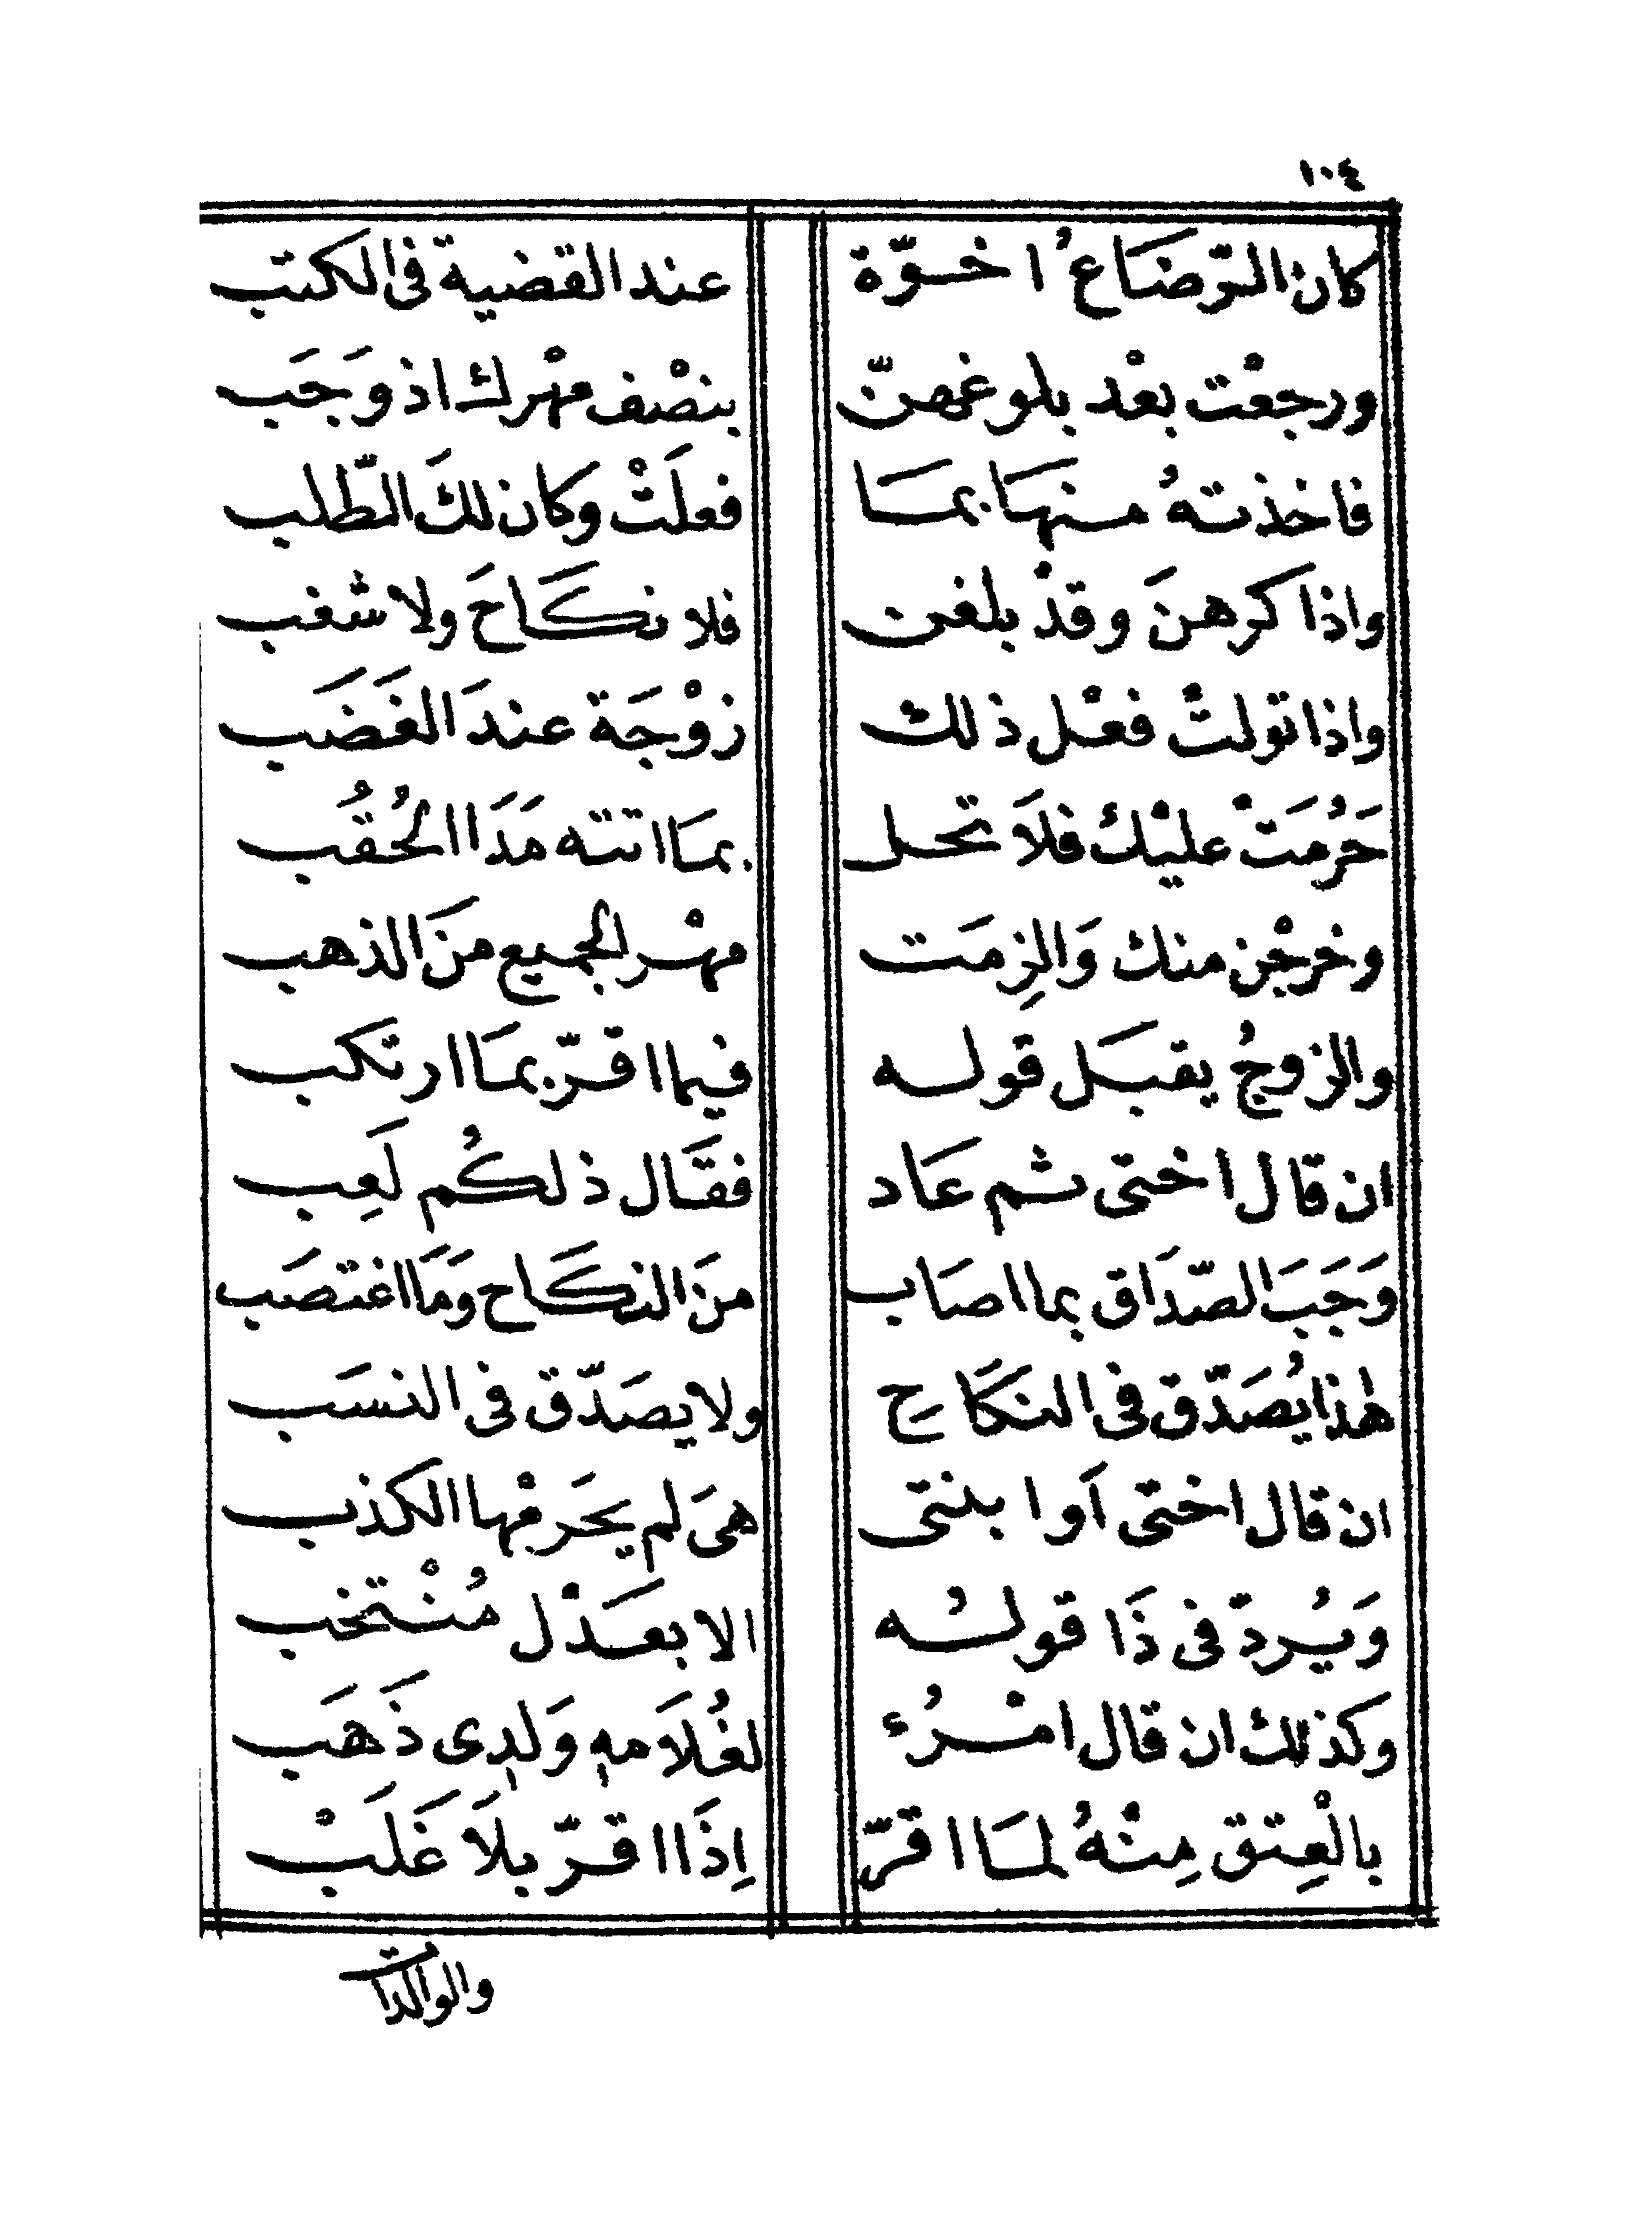 ١٠٤
كان الرّضَاعُ اخوّة عند القضية فى الكتب
ورجعْت بعْد بلوغهنّ بنصْف مهْرك اذ وَجَب
فاخذتهُ منهَا بمَا فعلَتْ وكان لكَ الطّلب
واذا كرهنَ وقدْ بلغن فلا نكَاحَ ولا شغب
واذا تولتْ فعْل ذلك زوْجَة عندَ الغَضَب
حَرُمَتْ عليْك فلَا تحل بمَا اتته مَدَا الحُقُب
وخرجْن منك وَالزِمَت مهْر الجميع منَ الذهب
والزوجُ يقبَل قوله فيما اقرّ بمَا ارتكب
ان قال اختى ثم عَاد فقَال ذلكُم لَعِب
وَجَبَ الصّدَاق بما اصَاب منَ النكَاح وَمَا اغتصَب
هٰذا يُصَدّق فى النكَاحِ ولا يصَدّق فى النسَب
ان قال اختى اَوا بنتى هىَ لم يحَر مْها الكذب
وَيُردّ فى ذَا قولُه الا بعَدْل مُنْتخب
وكذلك ان قال امْرُء لغُلَامهٖ وَلدِى ذَهَب
بالْعِتق مِنْهُ لمَا اقرّ اِذَا اقرّ بلَا غَلَبْ
والوالدات